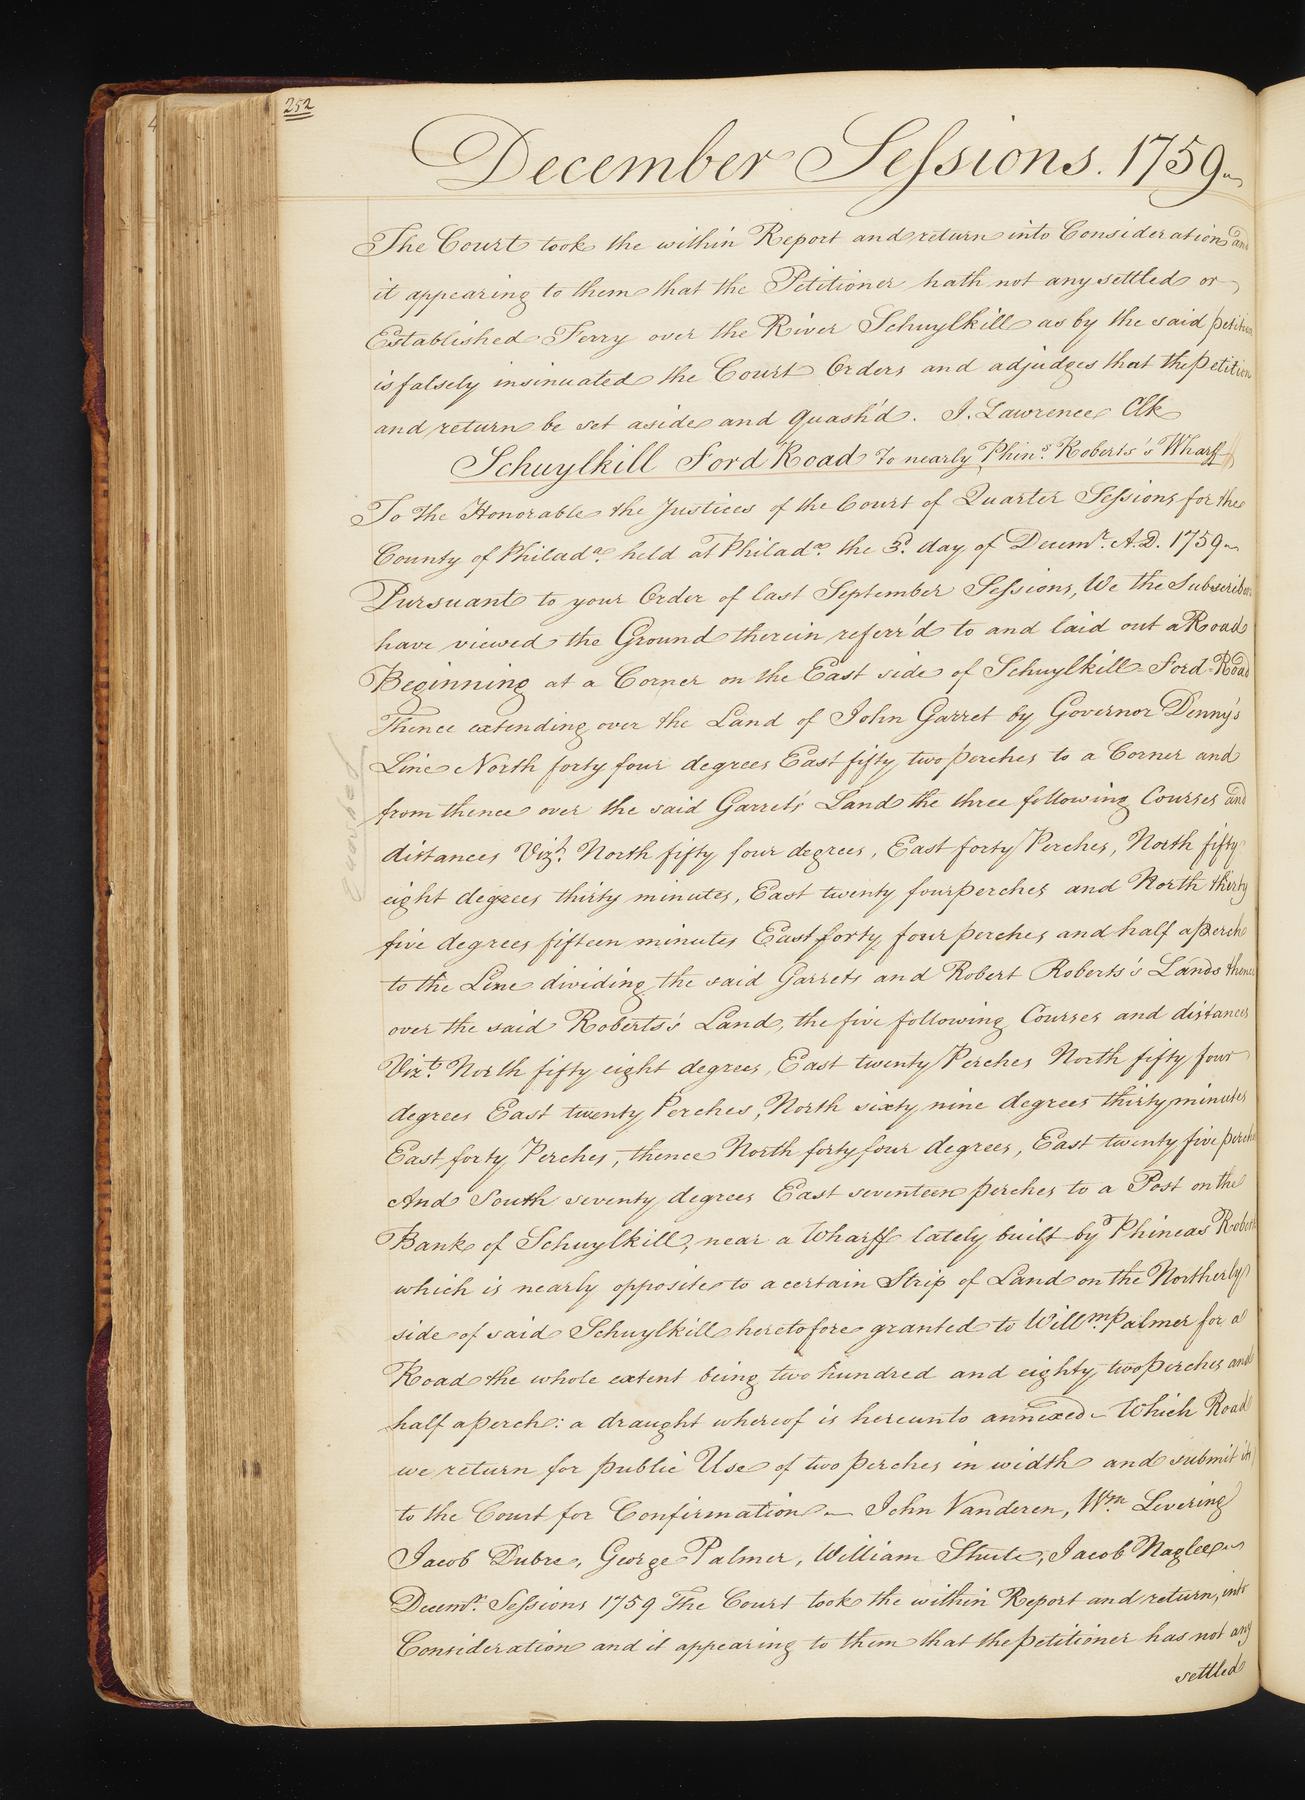 252
December Sessions. 1759
The Court took the within Report and return into Consideration and
it appearing to them that the Petitioner hath not any settled or
Established Ferry over the River Schuylkill as by the said petition
is falsely insinuated the Court Orders and adjudges that the petition
and return be set aside and Quash'd. J. Lawrence Clk
Schuylkill Ford Road to nearly Phins. Roberts's Wharff
To the Honorable the Justices of the Court of Quarter Sessions for the
County of Philada. held at Philada. the 3d. day of Decemr. A.D. 1759
Pursuant to your Order of last September Sessions, We the Subscribers
have viewed the Ground therein referr'd to and laid out a Road
Beginning at a Corner on the East side of Schuylkill-Ford-Road
Thence extending over the Land of John Garret by Governor Denny's
Line North forty four degrees East fifty two perches to a Corner and
from thence over the said Garret's Land the three following Courses and
distances Vizt. North fifty four degrees, East forty Perches, North fifty
eight degrees thirty minutes, East twenty four perches and North thirty
five degrees fifteen minutes East forty four perches and half a perch
to the Line dividing the said Garrets and Robert Roberts's Lands thence
over the said Roberts's Land, the five following Courses and distances
Vizt. North fifty eight degrees, East twenty Perches North fifty four
degrees East twenty Perches, North sixty nine degrees thirty minutes
East forty Perches, thence North forty four degrees, East twenty five perches
And South seventy degrees East seventeen perches to a Post on the
Bank of Schuylkill, near a Wharff lately built by Phineas Roberts
which is nearly opposite to a certain Strip of Land on the Northerly
side of said Schuylkill heretofore granted to Willm. Palmer for a
Road the whole extent being two hundred and eighty two perches and
half a perch: a draught whereof is hereunto annexed - Which Road
we return for public Use of two perches in width and submit it
to the Court for Confirmation - John Vanderen, Wm Levering
Jacob Dubre, George Palmer, William Shute, Jacob Naglee
Decemr. Sessions 1759 The Court took the within Report and return, into
Consideration and it appearing to them that the petitioner has not any
settled
Quashed